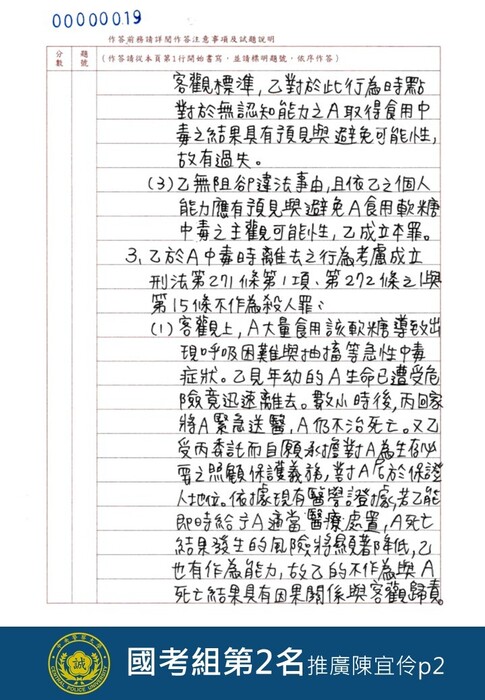 00000019
作答前務請詳閱作答注意事項及試題說明
分數
題號
(作答請從本頁第1行開始書寫，並請標明題號，依序作答)
客觀標準，乙對於此行為時點
對於無認知能力之A取得食用中
毒之結果具有預見與避免可能性，
故有過失。
(3)乙無阻卻違法事由，且依乙之個人
能力應有預見與避免A食用軟糖
中毒之主觀可能性，乙成立本罪。
3、乙於A中毒時離去之行為考慮成立
刑法第271條第1項、第272條之1與
第15條不作為殺人罪：
(1)客觀上，A大量食用該軟糖導致出
現呼吸困難與抽搐等急性中毒
症狀。乙見年幼的A生命已遭受危
險竟迅速離去。數小時後，丙回家
將A緊急送醫，A仍不治死亡。又乙
受丙委託而自願承擔對A為生存必
要之照顧保護義務，對A居於保證
人地位。依據現有醫學證據，若乙能
即時給予A適當醫療處置，A死亡
結果發生的風險將顯著降低，乙
也有作為能力，故乙的不作為與A
死亡結果具有因果關係與客觀歸責。
中央警察大學
誠
CENTRAL POLICE UNIVERSITY
國考組第2名推廣陳宜伶p2